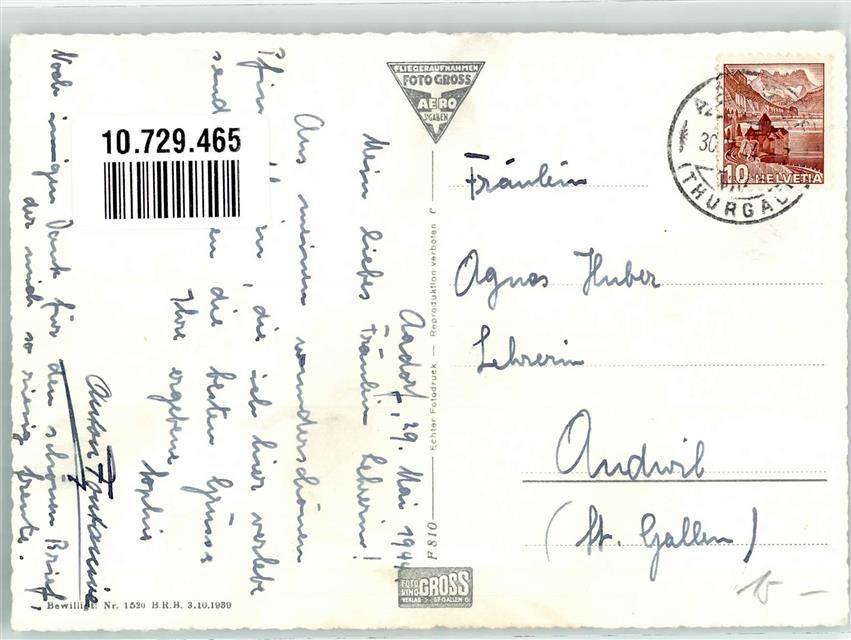 FLIEGERAUFNAHMEN
FOTO GROSS
AERO
ST GALLEN
Aadorf, 29. Mai 1944
Mein liebes Fräulein Lehrerin!
Aus meinen wunderschönen
Pfin die ich hier verlebe
send en die besten Grüsse
Ihre ergebene Sophie
Anton Fontanive
Noch innigen Dank für den schönen Brief,
der mich so riesig freute.
10.729.465
Bewilligt. Nr. 1520 B.R.B. 3.10.1939
F 810 — Echter Fotodruck — Reproduktion verboten
FOTO
KINO
GROSS
VERLAG ST. GALLEN
10 HELVETIA
30
(THURGAU)
Fräulein
Agnes Huber
Lehrerin
Andwil
(St. Gallen)